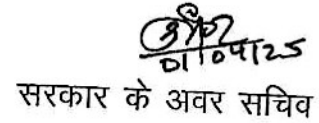 01/04/25
सरकार के अवर सचिव